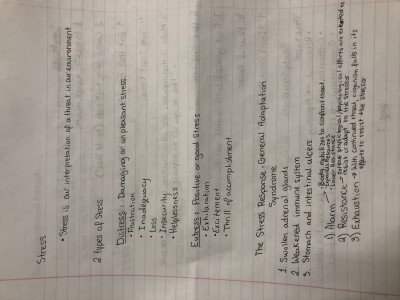 Stress
• Stress is our interpretation of a threat in our environment
2 types of Stress
Distress: Damaging or unpleasant stress.
• Frustration
• Inadequacy
• Loss
• Insecurity
• Helplessness
Eustress: Positive or good stress
• Exhilaration
• Excitement
• Thrill of accomplishment
The Stress Response: General Adaptation
Syndrome
1. Swollen adrenal glands
2. Weakened immune system
3. Stomach and intestinal ulcers
1) Alarm → Body mobilizes to confront threat.
→ Lower Resistance
2) Resistance → physiological/psychological efforts are exerted to
resist or adapt to the stressor
3) Exhaustion → With continued threat, organism fails in its
efforts to resist the stressor